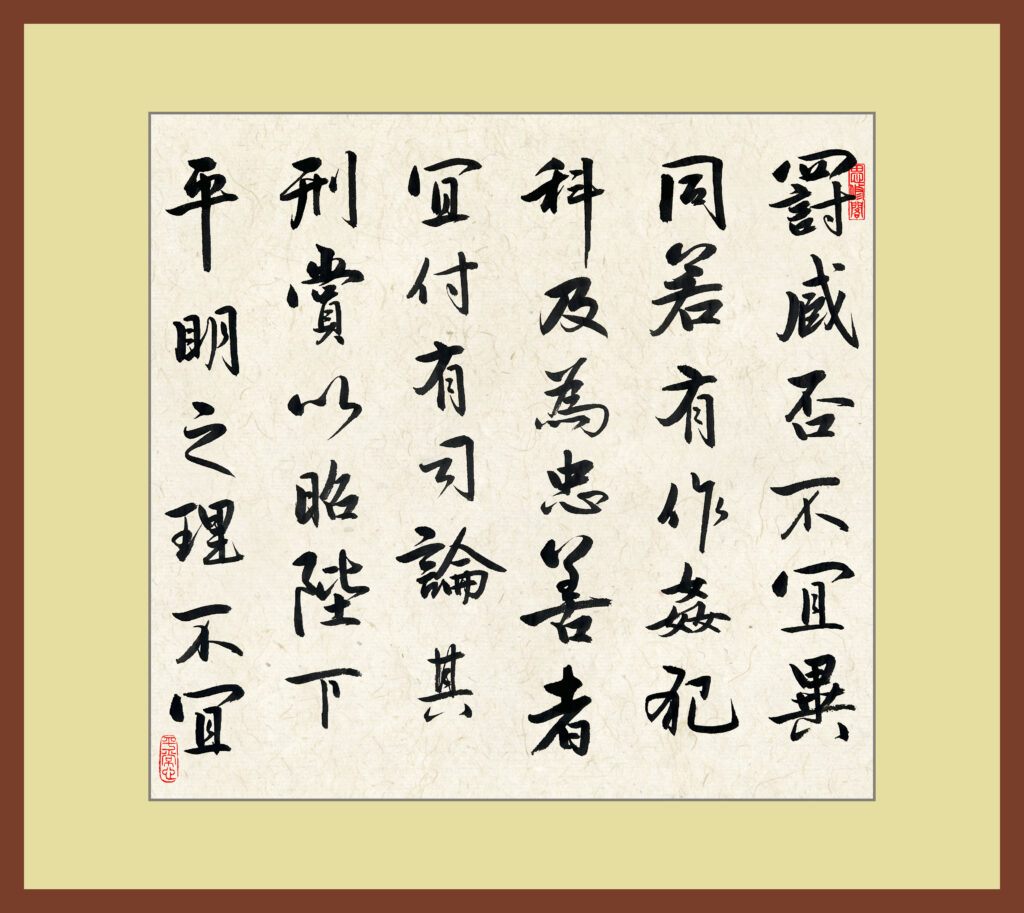 罰臧否不宜異
同若有作姦犯
科及為忠善者
宜付有司論其
刑賞以昭陛下
平明之理不宜
平常心